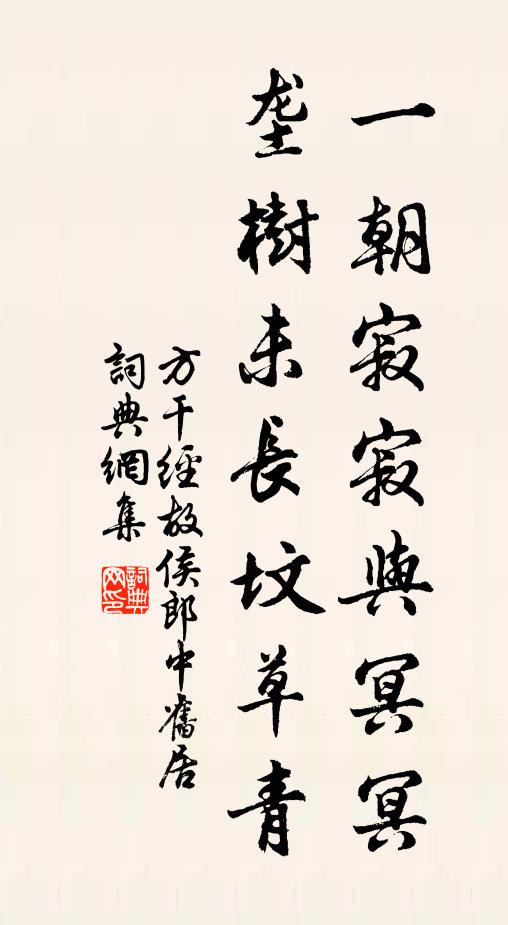 一朝寂寂與冥冥
垄樹未長坟草青
方干經故侯郎中舊居
詞典網集
詞典網印